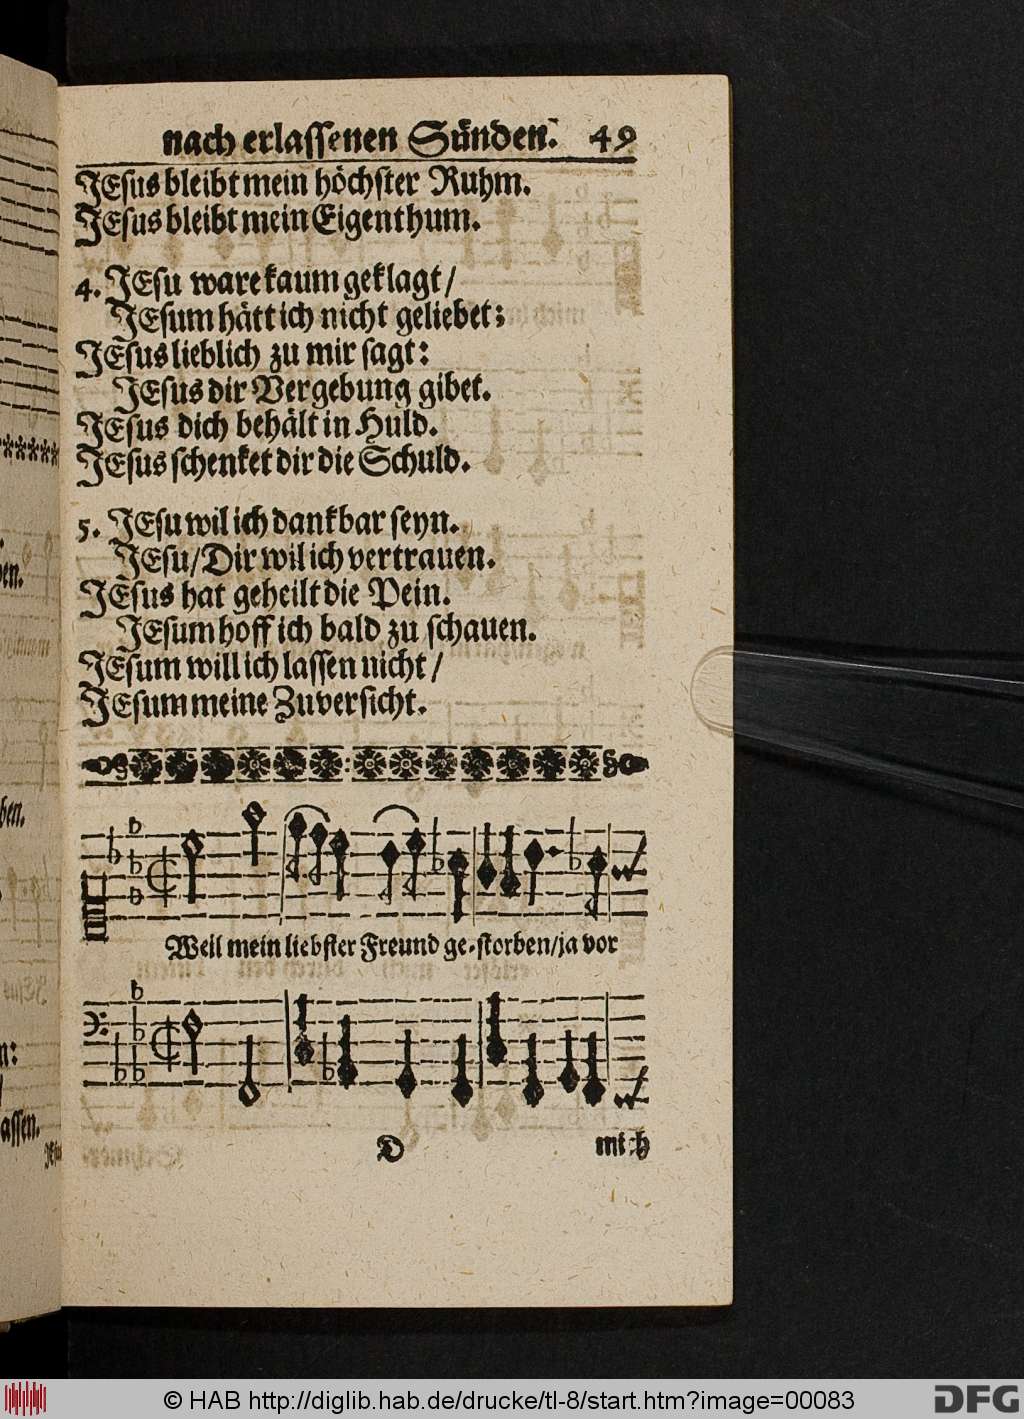 nach erlassenen Sünden. 49
JEsus bleibt mein höchster Ruhm.
JEsus bleibt mein Eigenthum.
4. JEsu ware kaum geklagt/
JEsum hätt ich nicht geliebet;
JEsus lieblich zu mir sagt:
JEsus dir Vergebung gibet.
JEsus dich behält in Huld.
JEsus schenket dir die Schuld.
5. JEsu wil ich dankbar seyn.
JEsu/Dir wil ich vertrauen.
JEsus hat geheilt die Pein.
JEsum hoff ich bald zu schauen.
JEsum will ich lassen nicht/
JEsum meine Zuversicht.
Weil mein liebster Freund ge-storben/ja vor
D mich
© HAB http://diglib.hab.de/drucke/tl-8/start.htm?image=00083
DFG